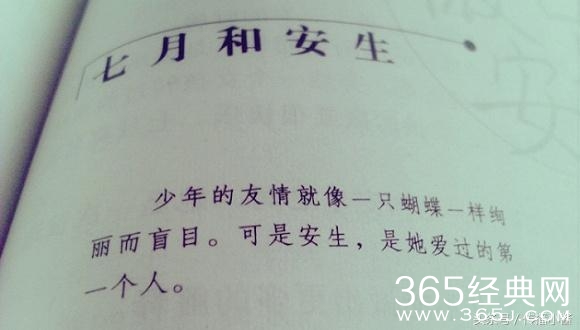 七月和安生
少年的友情就像一只蝴蝶一样绚
丽而盲目。可是安生，是她爱过的第
一个人。
365经典网
www.365j.com